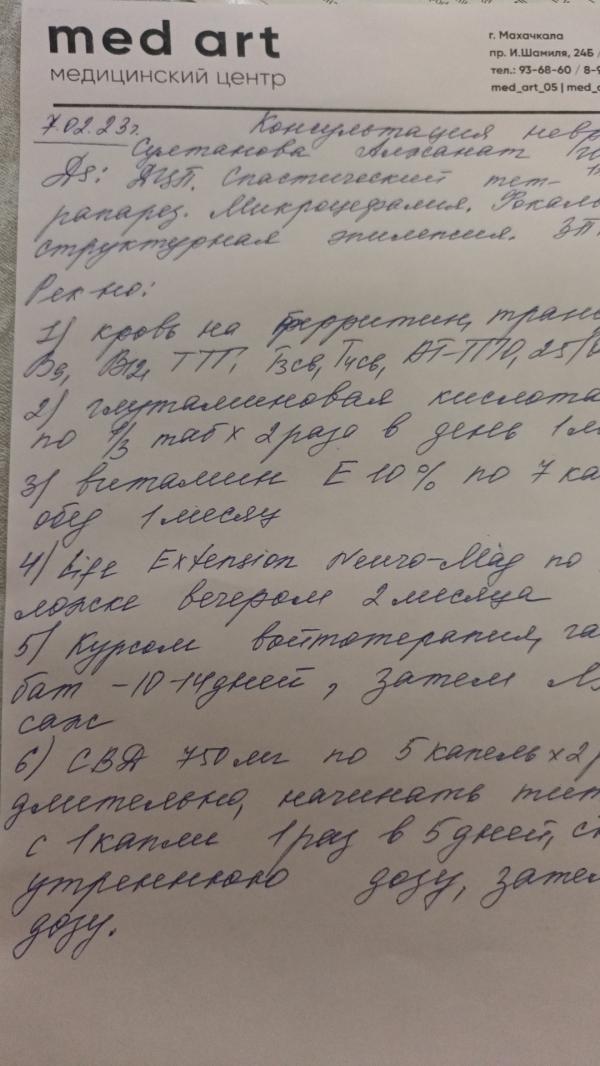 med art
медицинский центр
г. Махачкала
пр. И.Шамиля, 24Б /
тел.: 93-68-60 / 8-9
med_art_05 | med_a
7.02.23г. Консультация невр
Султанова
Ds: ДЦП. Спастический тет-
рапарез. Микроцефалия. Фокаль
структурная эпилепсия. ЗП
Рек-но:
1) кровь на ферритин, транс
В9, В12, ТТГ, Т3св, Т4св, АТ-ТПО, 25/
2) глутаминовая кислота
по 1/3 таб х 2 раза в день 1 м
3) витамин Е 10% по 7 ка
обед 1 месяц
4) Life Extension Neuro-Mag по
ложке вечером 2 месяца
5) Курсом войтотерапия, га
бат -10-14 дней, затем м
саж
6) СВД 750 мг по 5 капель х 2 р
длительно, начинать тит
с 1 капли 1 раз в 5 дней, с
утреннюю дозу, зате
дозу.